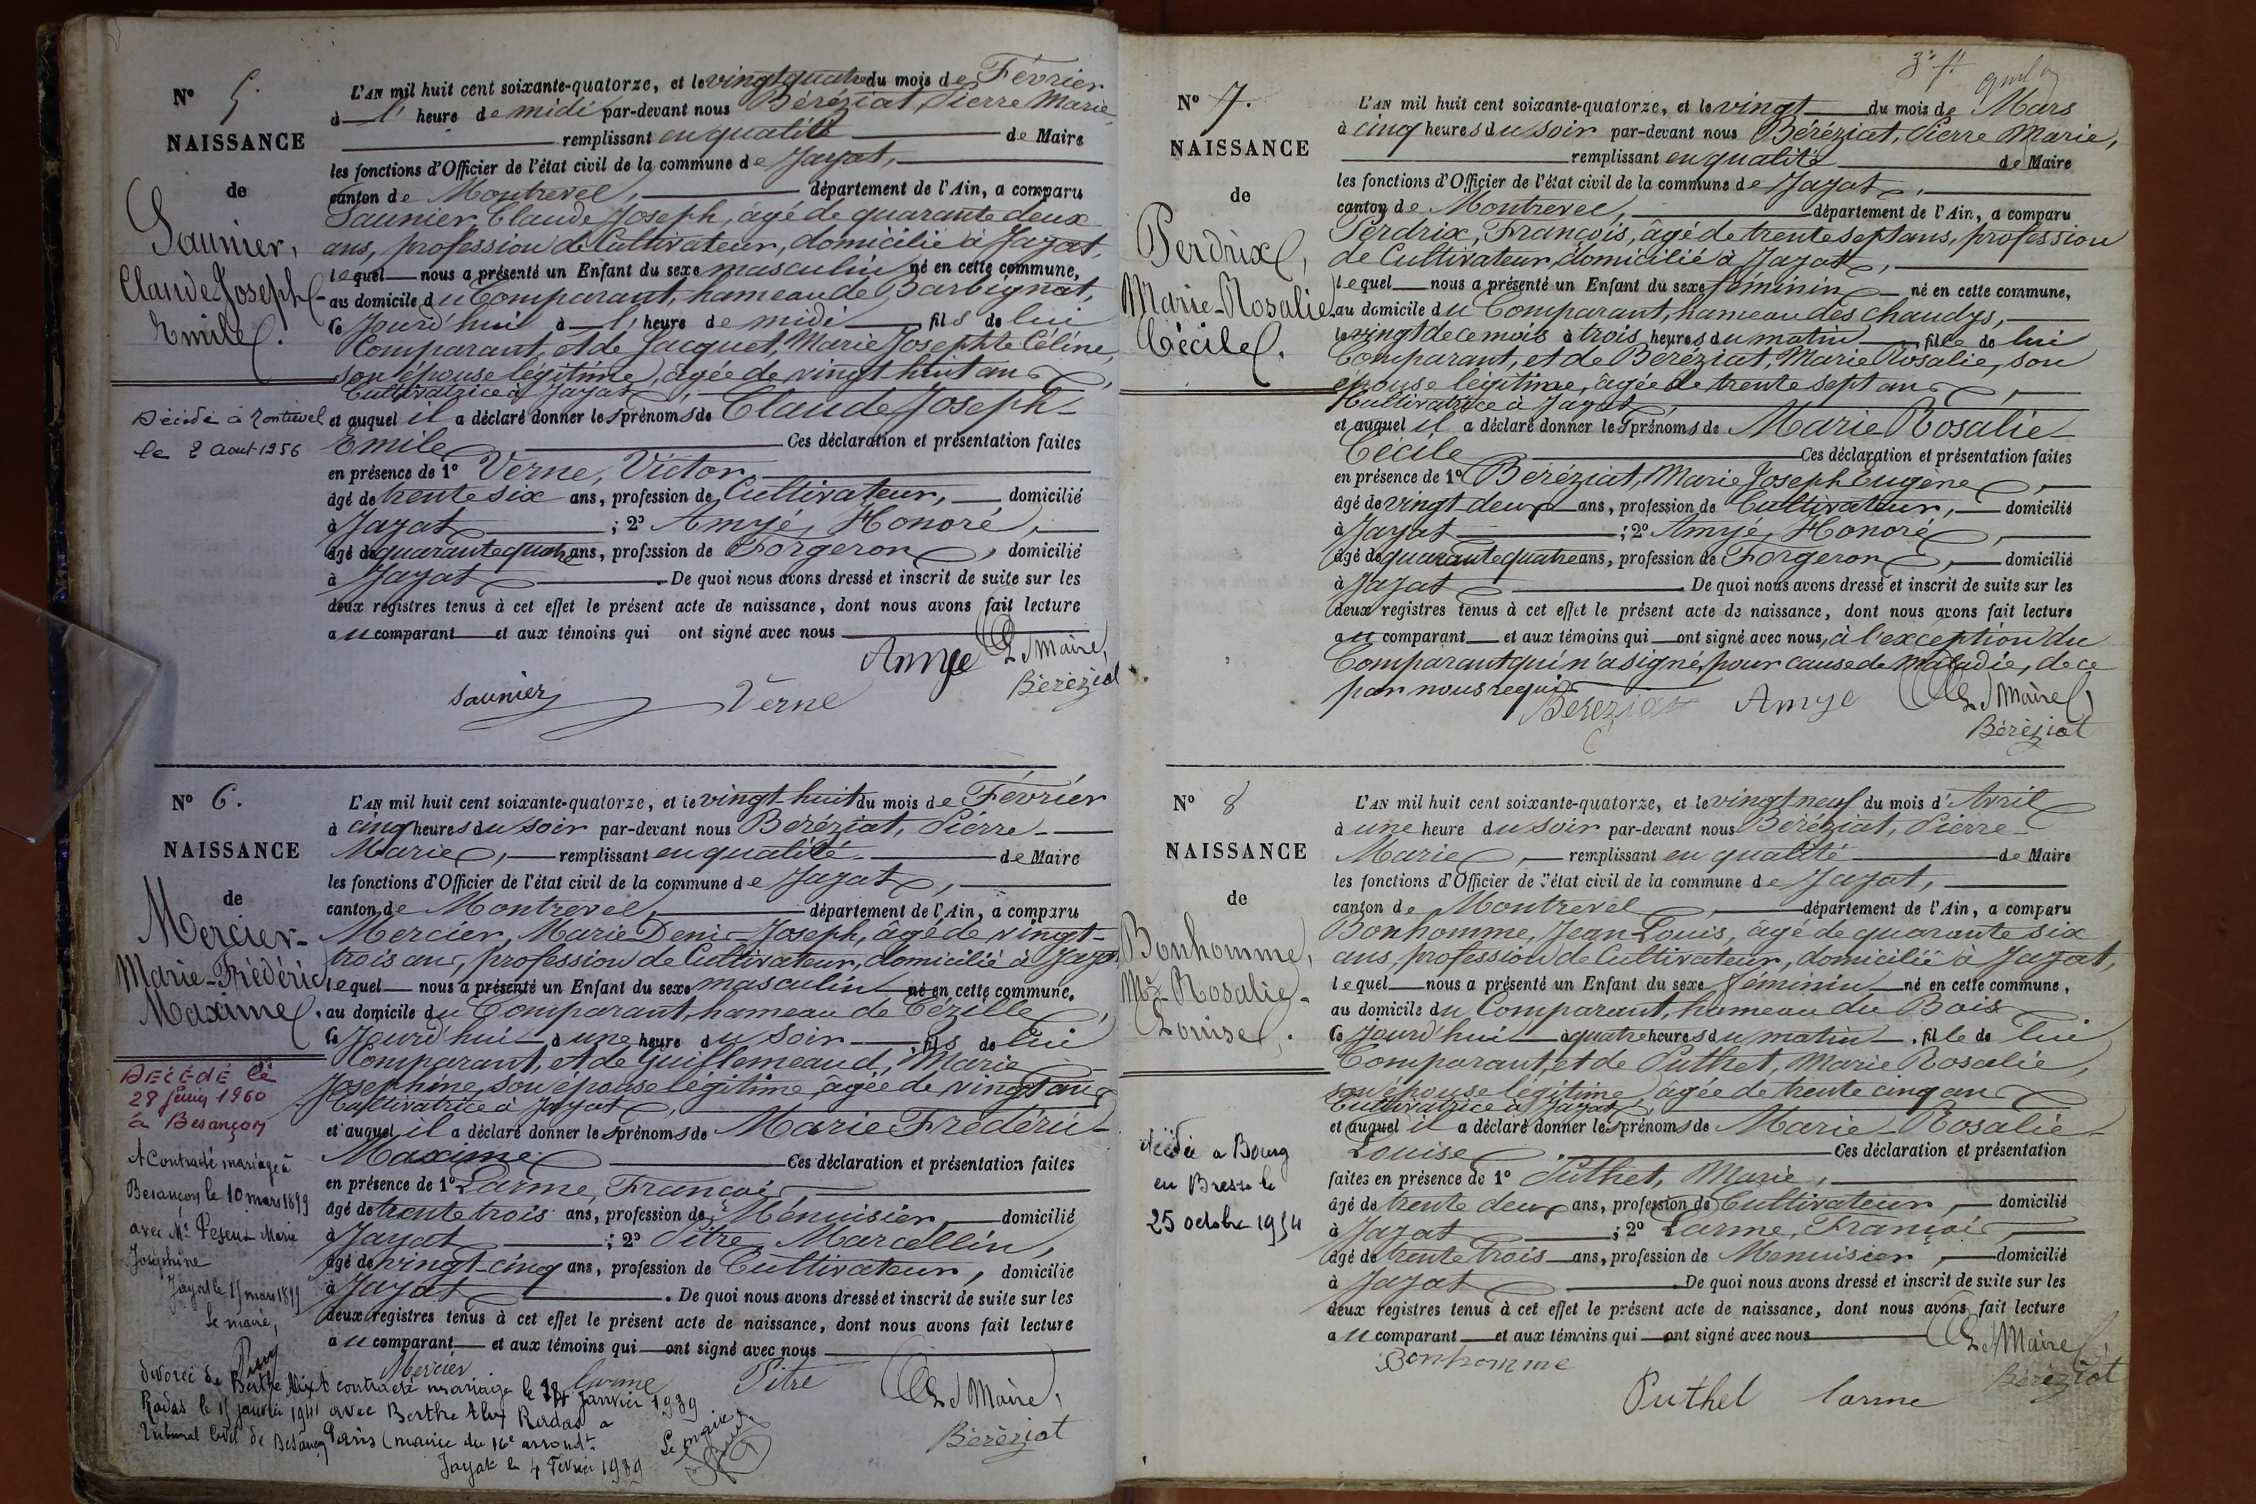 N° 5.
NAISSANCE
de
Saunier,
Claude Joseph-
Emile.
Décédé à Montrevel
le 2 Aout 1956
L'AN mil huit cent soixante-quatorze, et le vingt quatre du mois de Février
à l' heure de midi par-devant nous Béréziat, Pierre Marie,
remplissant en qualité de Maire
les fonctions d'Officier de l'état civil de la commune de Jayat,
canton de Montrevel, département de l'Ain, a comparu
Saunier, Claude Joseph, âgé de quarante deux
ans, profession de Cultivateur, domicilié à Jayat,
lequel nous a présenté un Enfant du sexe masculin né en cette commune,
au domicile du Comparant, hameau de Barbignat,
ce jourd'hui à l' heure de midi fils de lui
Comparant, et de Jacquet, Marie Josephte Céline,
son épouse légitime, âgée de vingt huit ans,
Cultivatrice à Jayat,
et auquel il a déclaré donner les prénoms de Claude Joseph-
Emile Ces déclaration et présentation faites
en présence de 1° Verne, Victor
âgé de trente six ans, profession de Cultivateur, domicilié
à Jayat ; 2° Amyé, Honoré,
âgé de quarante quatre ans, profession de Forgeron, domicilié
à Jayat. De quoi nous avons dressé et inscrit de suite sur les
deux registres tenus à cet effet le présent acte de naissance, dont nous avons fait lecture
au comparant et aux témoins qui ont signé avec nous
Amye Le Maire,
Saunier Verne Béréziat
N° 6.
NAISSANCE
de
Mercier-
Marie-Frédéric
Maxime.
DÉCÉDÉ le
28 1960
à Besançon
A Contracté mariage à
Besançon le 10 mars 1899
avec Mlle Marie
Joséphine
Jayat le 15 mars 1899
Le maire,
L'AN mil huit cent soixante-quatorze, et le vingt-huit du mois de Février
à cinq heures du soir par-devant nous Béréziat, Pierre-
Marie, remplissant en qualité de Maire
les fonctions d'Officier de l'état civil de la commune de Jayat,
canton de Montrevel, département de l'Ain, a comparu
Mercier, Marie Denis-Joseph, âgé de vingt-
trois ans, profession de Cultivateur, domicilié à Jayat
lequel nous a présenté un Enfant du sexe masculin né en cette commune,
au domicile du Comparant, hameau de Cézille,
ce jourd'hui à une heure du soir, fils de lui
Comparant, et de Guillemeaud, Marie
Josephine, son épouse légitime, âgée de vingt ans,
Cultivatrice à Jayat,
et auquel il a déclaré donner les prénoms de Marie Frédéric-
Maxime. Ces déclaration et présentation faites
en présence de 1° Larme, François
âgé de trente trois ans, profession de Menuisier, domicilié
à Jayat ; 2° Pitre, Marcellin,
âgé de vingt-cinq ans, profession de Cultivateur, domicilié
à Jayat. De quoi nous avons dressé et inscrit de suite sur les
deux registres tenus à cet effet le présent acte de naissance, dont nous avons fait lecture
au comparant et aux témoins qui ont signé avec nous
Mercier larme Pitre Le Maire,
Béréziat
divorcé de Berthe Alix
Radas le 15 janvier 1941
Tribunal Civil de Besançon
A contracté mariage le 24 Janvier 1939
avec Berthe Alix Radas à
Paris (mairie du 16e arrondt.
Jayat le 4 Février 1939
Le maire
3e f.
N° 7.
NAISSANCE
de
Perdrix,
Marie-Rosalie
Cécile.
L'AN mil huit cent soixante-quatorze, et le vingt du mois de Mars
à cinq heures du soir par-devant nous Béréziat, Pierre Marie,
remplissant en qualité de Maire
les fonctions d'Officier de l'état civil de la commune de Jayat,
canton de Montrevel, département de l'Ain, a comparu
Perdrix, François, âgé de trente sept ans, profession
de Cultivateur, domicilié à Jayat,
lequel nous a présenté un Enfant du sexe féminin né en cette commune,
au domicile du Comparant, hameau des chaudys,
le vingt de ce mois à trois heures du matin fille de lui
Comparant, et de Béréziat, Marie Rosalie, son
épouse légitime, âgée de trente sept ans,
Cultivatrice à Jayat,
et auquel il a déclaré donner les prénoms de Marie Rosalie-
Cécile Ces déclaration et présentation faites
en présence de 1° Béréziat, Marie Joseph Eugène,
âgé de vingt-deux ans, profession de Cultivateur, domicilié
à Jayat ; 2° Amyé, Honoré,
âgé de quarante quatre ans, profession de Forgeron, domicilié
à Jayat. De quoi nous avons dressé et inscrit de suite sur les
deux registres tenus à cet effet le présent acte de naissance, dont nous avons fait lecture
au comparant et aux témoins qui ont signé avec nous, à l'exception du
Comparant qui n'a signé, pour cause de maladie, de ce
par nous requis.
Béréziat Amye Le Maire,
Béréziat
N° 8
NAISSANCE
de
Bonhomme,
Mie-Rosalie-
Louise.
décédée à Bourg
en Bresse le
25 octobre 1954
L'AN mil huit cent soixante-quatorze, et le vingt neuf du mois d'Avril
à une heure du soir par-devant nous Béréziat, Pierre-
Marie, remplissant en qualité de Maire
les fonctions d'Officier de l'état civil de la commune de Jayat,
canton de Montrevel, département de l'Ain, a comparu
Bonhomme, Jean-Louis, âgé de quarante six
ans, profession de Cultivateur, domicilié à Jayat,
lequel nous a présenté un Enfant du sexe féminin né en cette commune,
au domicile du Comparant, hameau du Bois
ce jourd'hui à quatre heures du matin, fille de lui
Comparant, et de Puthet, Marie Rosalie,
son épouse légitime, âgée de trente cinq ans
Cultivatrice à Jayat,
et auquel il a déclaré donner les prénoms de Marie-Rosalie-
Louise. Ces déclaration et présentation
faites en présence de 1° Puthet, Marie,
âgé de trente deux ans, profession de Cultivateur, domicilié
à Jayat ; 2° Larme, François,
âgé de trente trois ans, profession de Menuisier, domicilié
à Jayat. De quoi nous avons dressé et inscrit de suite sur les
deux registres tenus à cet effet le présent acte de naissance, dont nous avons fait lecture
au comparant et aux témoins qui ont signé avec nous
Bonhomme Le Maire,
Puthet larme Béréziat